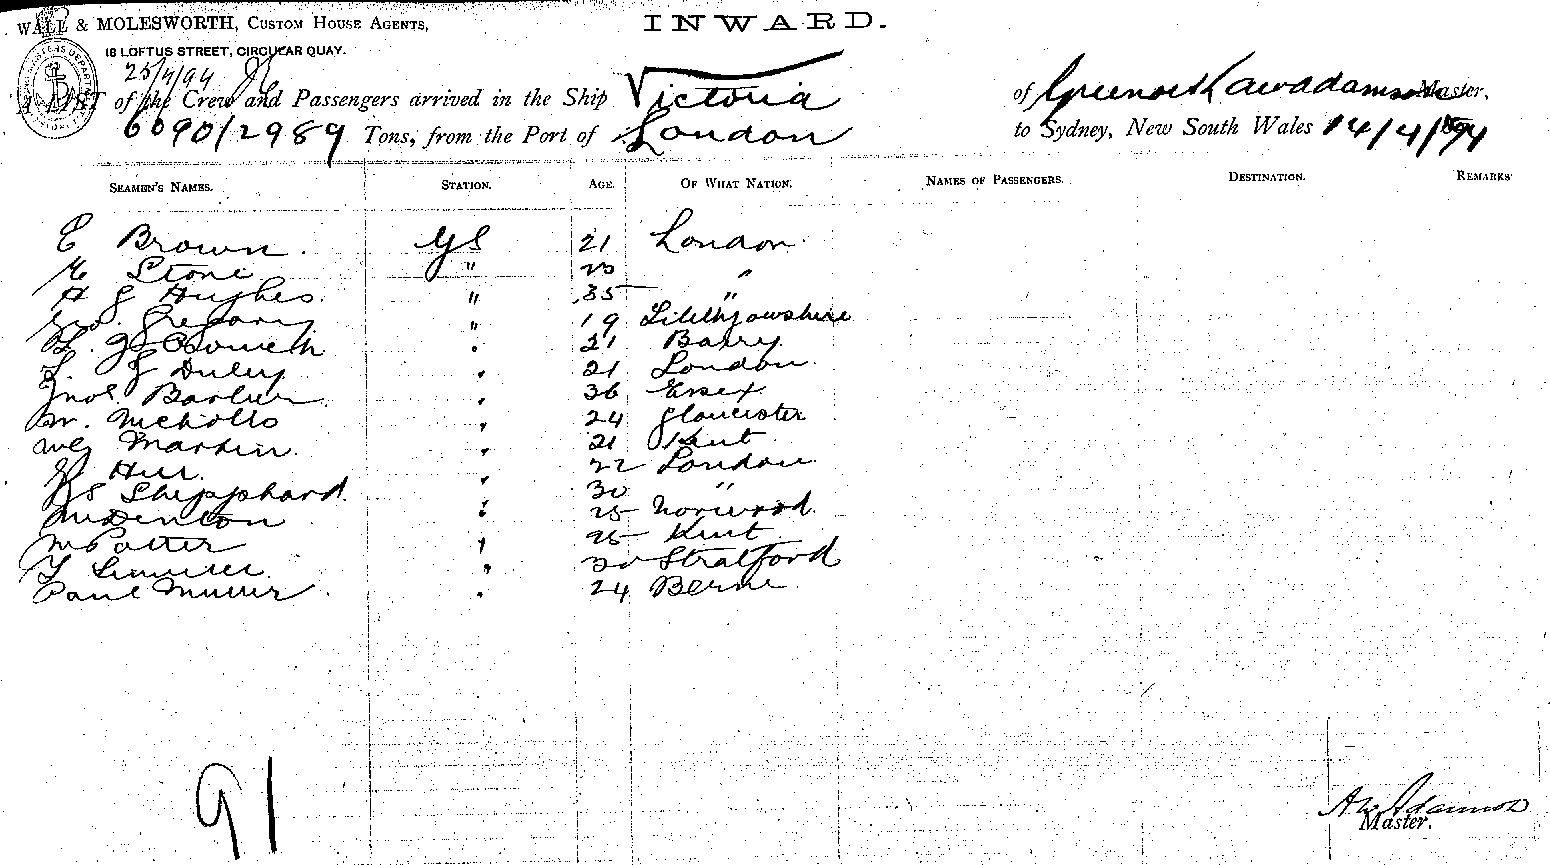 WALL & MOLESWORTH, CUSTOM HOUSE AGENTS,
INWARD.
18 LOFTUS STREET, CIRCULAR QUAY.
25/4/94
A LIST of the Crew and Passengers arrived in the Ship Victoria of Greenock Master,
6090/2989 Tons, from the Port of London to Sydney, New South Wales 14/4/94
SEAMEN'S NAMES. STATION. AGE. OF WHAT NATION. NAMES OF PASSENGERS. DESTINATION. REMARKS
E Brown. GS 21 London
Stone " 20 "
H G Hughes. " 35 "
Geo. Gregory " 19
21 Barry
Duley " 21 London
Barber " 36 Essex
W. Nicholls " 24 Gloucester
Wg Martin. " 21 Kent
Hill. " 22 London
Shepphard " 30 "
Denton " 25 Norwood
W Potter " 25 Kent
" 30 Stratford
Paul Muller " 24 Berne
91
A W Adamson
Master.